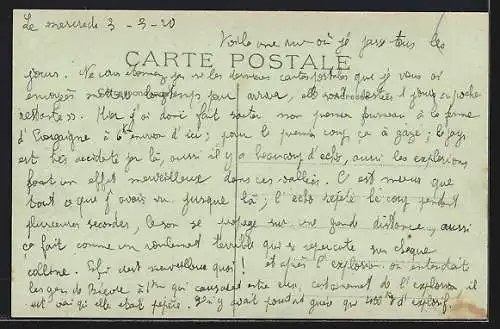 Le mercredi 3-3-20
Voilà une rue où je passe tous les
CARTE POSTALE
jours. Ne vous étonnez pas si les dernières cartes postales que je vous ai
envoyées mettent longtemps pour arriver, elles sont restées 4 jours en poche
restante. Hier j'ai donc fait sauter mon premier fourneau à la ferme
d' à 6 km environ d'ici; pour le premier coup ça a gazé; le pays
est très accidenté par là, aussi il y a beaucoup d'écho, aussi les explosions
font un effet merveilleux dans ces vallées. C'est mieux que
tout ce que j'avais vu jusque là; l'écho répète le coup pendant
plusieures secondes, le son se propage sur une grande distance, aussi
ça fait comme un roulement terrible qui se répercute sur chaque
colline. Enfin c'est merveilleux quoi! et après l'explosion on entendait
les gens de à 1 km qui causaient entre eux, certainement de l'explosion il
est vrai qu'elle était pépère. Il n'y avait pourtant guère que d'explosif.